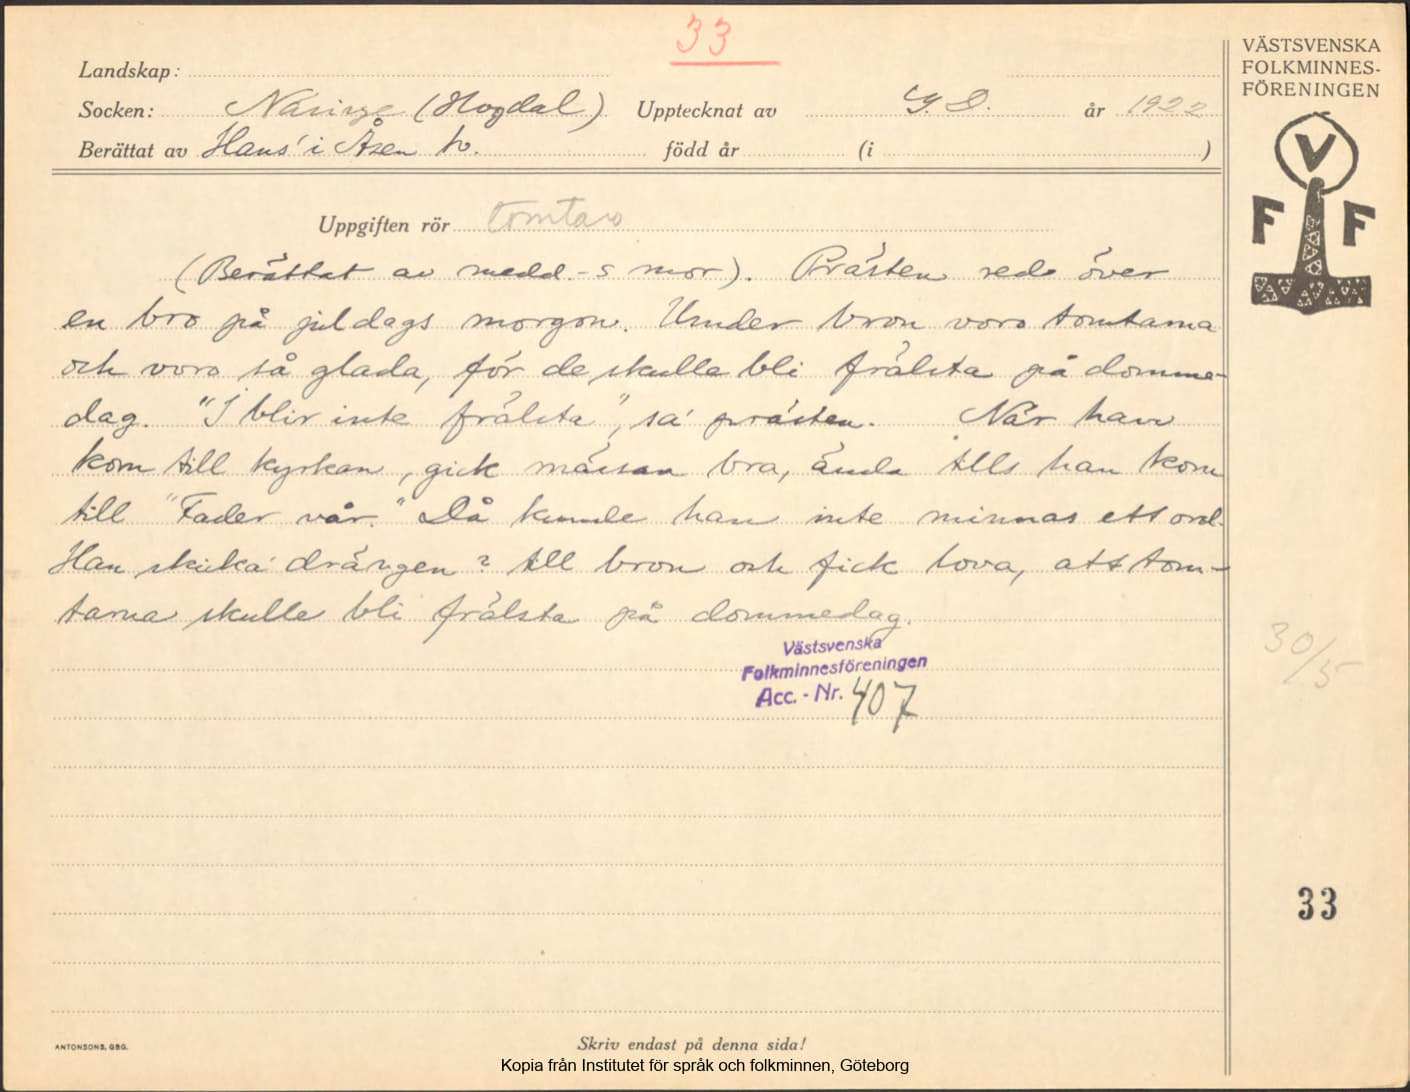 33
VÄSTSVENSKA
FOLKMINNES-
FÖRENINGEN
Landskap:
Socken: (Hogdal) Upptecknat av G. D. år 1922
Berättat av Hans' i Åsen h. född år (i )
V
F F
Uppgiften rör tomtar
(Berättat av medd-s mor). Prästen red över
en bro på juldags morgon. Under bron voro tomtarna
och voro så glada, för de skulle bli frälsta på domme-
dag. "I blir inte frälsta", sa' prästen. När han
kom till kyrkan, gick mässan bra, ända tills han kom
till "Fader vår." Då kunde han inte minnas ett ord.
Han skicka' drängen? till bron och fick lova, att tom-
tarna skulle bli frälsta på dommedag.
Västsvenska
Folkminnesföreningen
Acc. - Nr. 407
30/5
33
ANTONSONS, GBG.
Skriv endast på denna sida!
Kopia från Institutet för språk och folkminnen, Göteborg